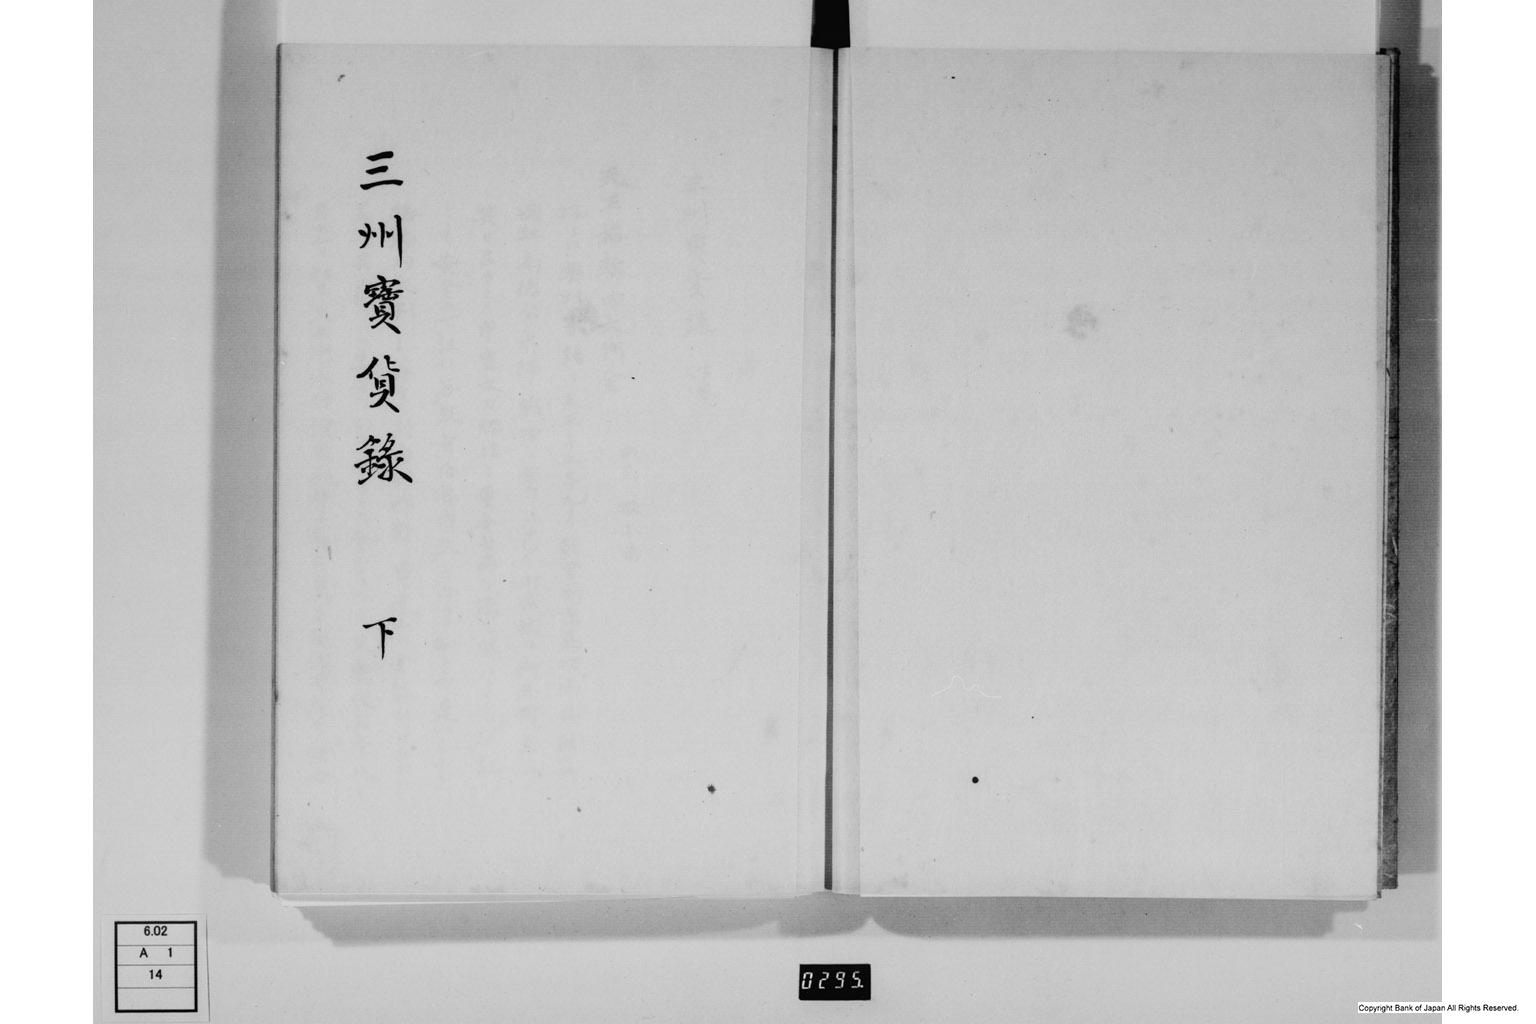 三州寳貨錄 下
6.02
A 1
14
0295
Copyright Bank of Japan All Rights Reserved.